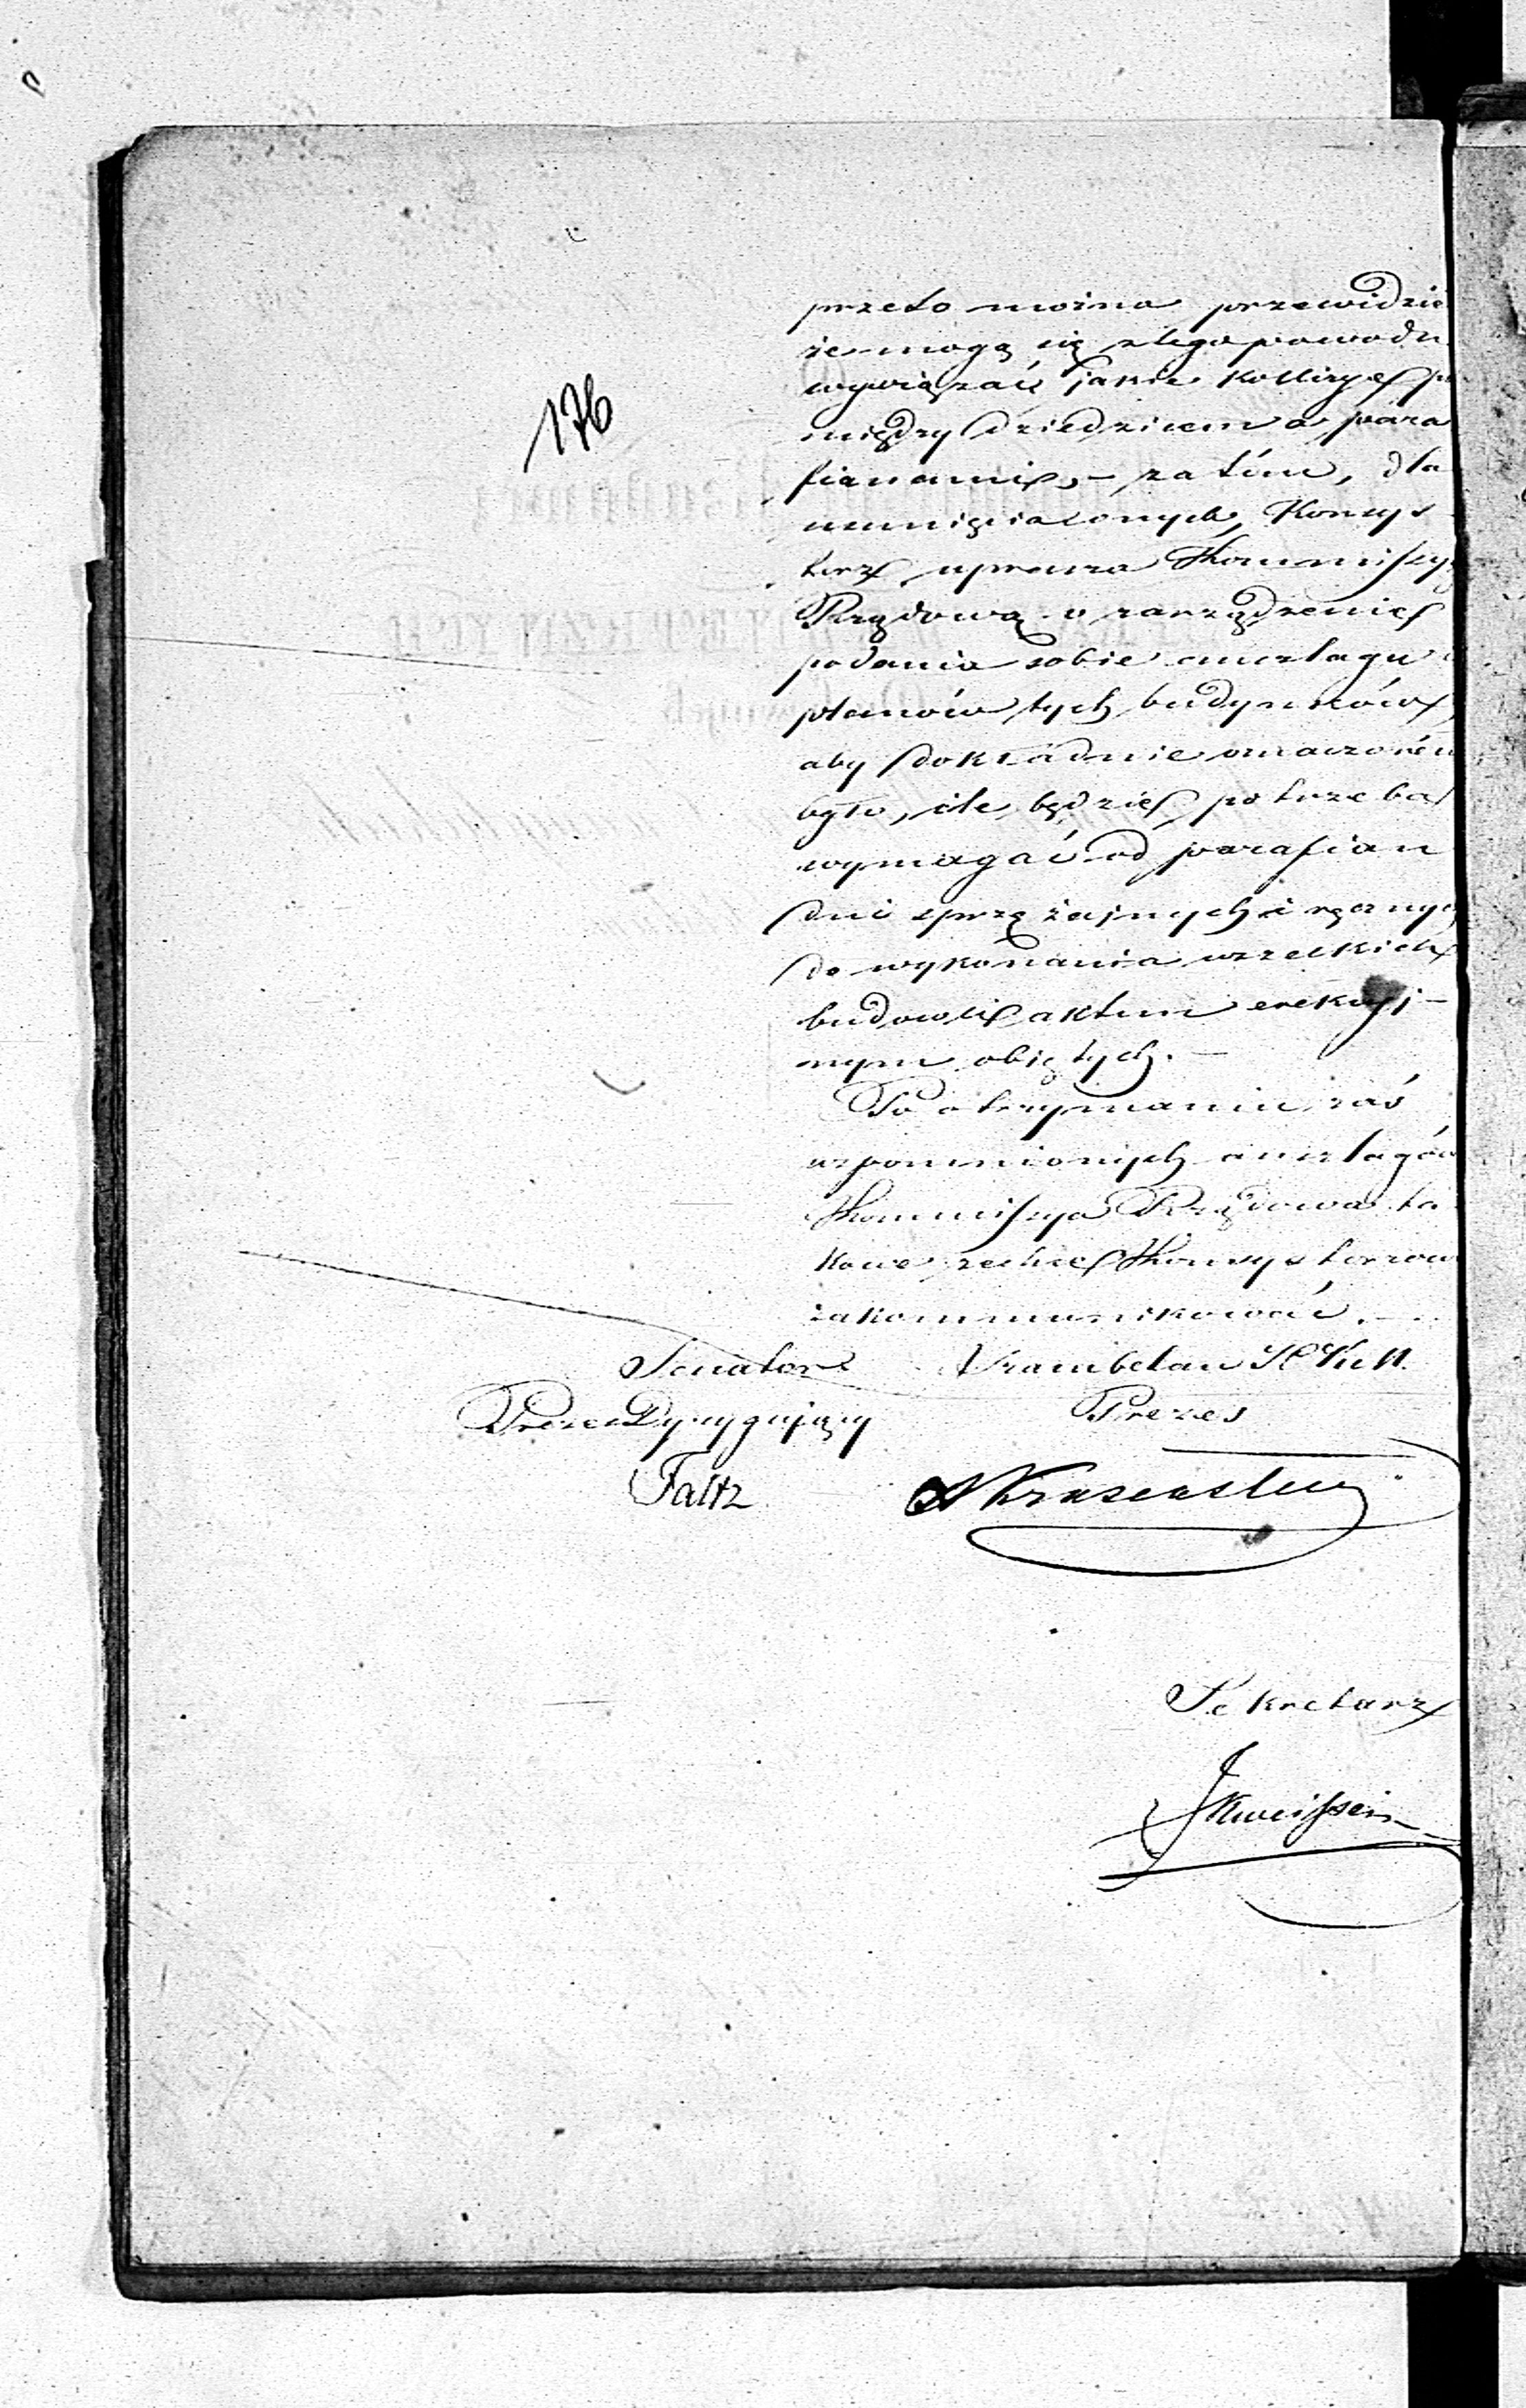 176
przeto można przewidzie
że mogą się z tego powodu
wywiązać jakie kollizye p
między dziedzicem a para
fianami, – zatém, dla
umnieyszonych, Konsys
torz uprasza Kommissyą
Rządową o zarządzenie
podania sobie anszlagu i
planów tych budynków,
aby dokładnie oznaczoném
było, ile będzie potrzeba
wymagać od parafian
dni sprzężajnych i ręcznyc
do wykonania wszelkich
budowli aktem erekcyj-
nym objętych. –
Po otrzymaniu zaś
wspomnionych anszlagów
Kommissya Rządowa ta
kowe zechce Konsystorzow
zakommunikować. –
Senator Szambelan
Prezes Dyrygujący Prezes
Faltz
Sekretarz